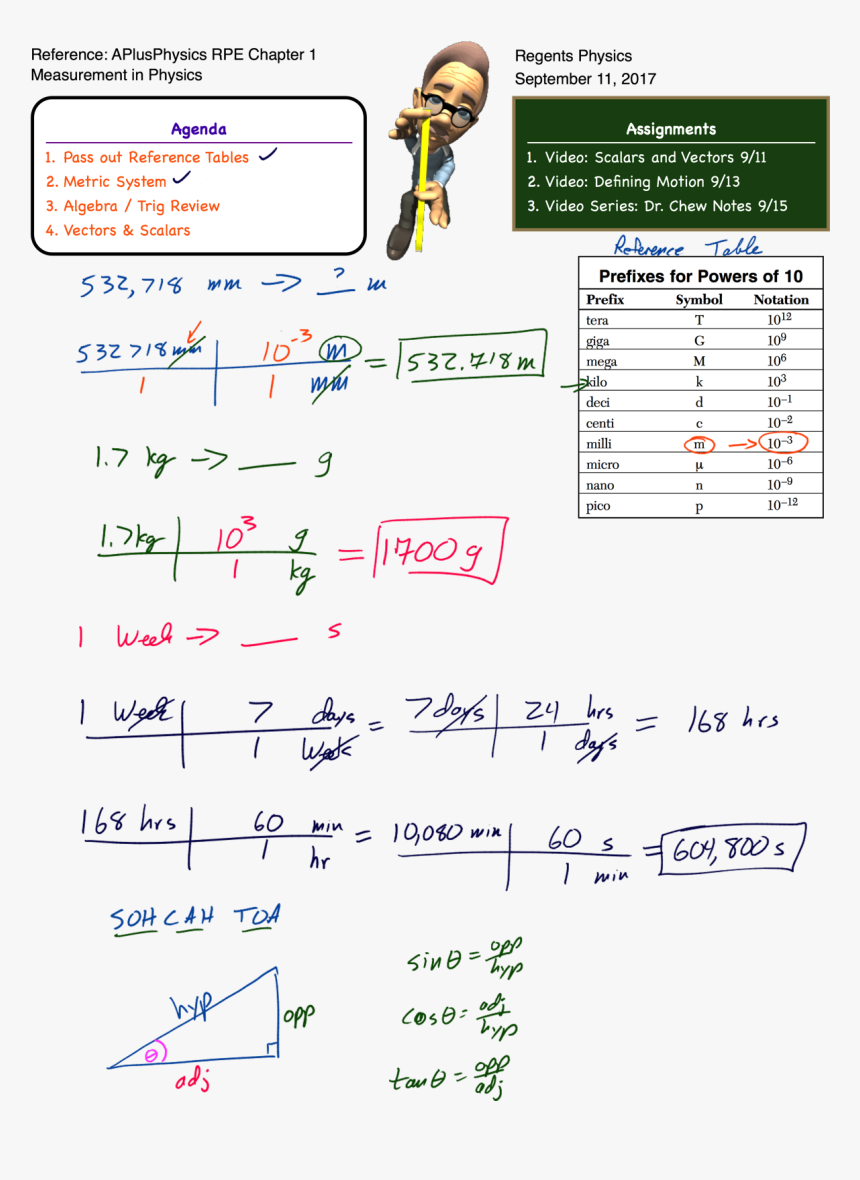 Reference: APlusPhysics RPE Chapter 1
Measurement in Physics
Regents Physics
September 11, 2017
Agenda
1. Pass out Reference Tables ✓
2. Metric System ✓
3. Algebra / Trig Review
4. Vectors & Scalars
Assignments
1. Video: Scalars and Vectors 9/11
2. Video: Defining Motion 9/13
3. Video Series: Dr. Chew Notes 9/15
Reference Table
Prefixes for Powers of 10
Prefix Symbol Notation
tera T 10¹²
giga G 10⁹
mega M 10⁶
kilo k 10³
deci d 10⁻¹
centi c 10⁻²
milli m → 10⁻³
micro μ 10⁻⁶
nano n 10⁻⁹
pico p 10⁻¹²
532,718 mm → ? m
532718 mm | 10⁻³ m = 532.718 m
1 | 1 mm
1.7 kg → __ g
1.7kg | 10³ g = 1700 g
| 1 kg
1 Week → __ s
1 Week | 7 days = 7 days | 24 hrs = 168 hrs
| 1 Week | 1 days
168 hrs | 60 min = 10,080 min | 60 s = 604,800 s
| 1 hr | 1 min
SOH CAH TOA
hyp
opp
θ
adj
sin θ = opp/hyp
cos θ = adj/hyp
tan θ = opp/adj